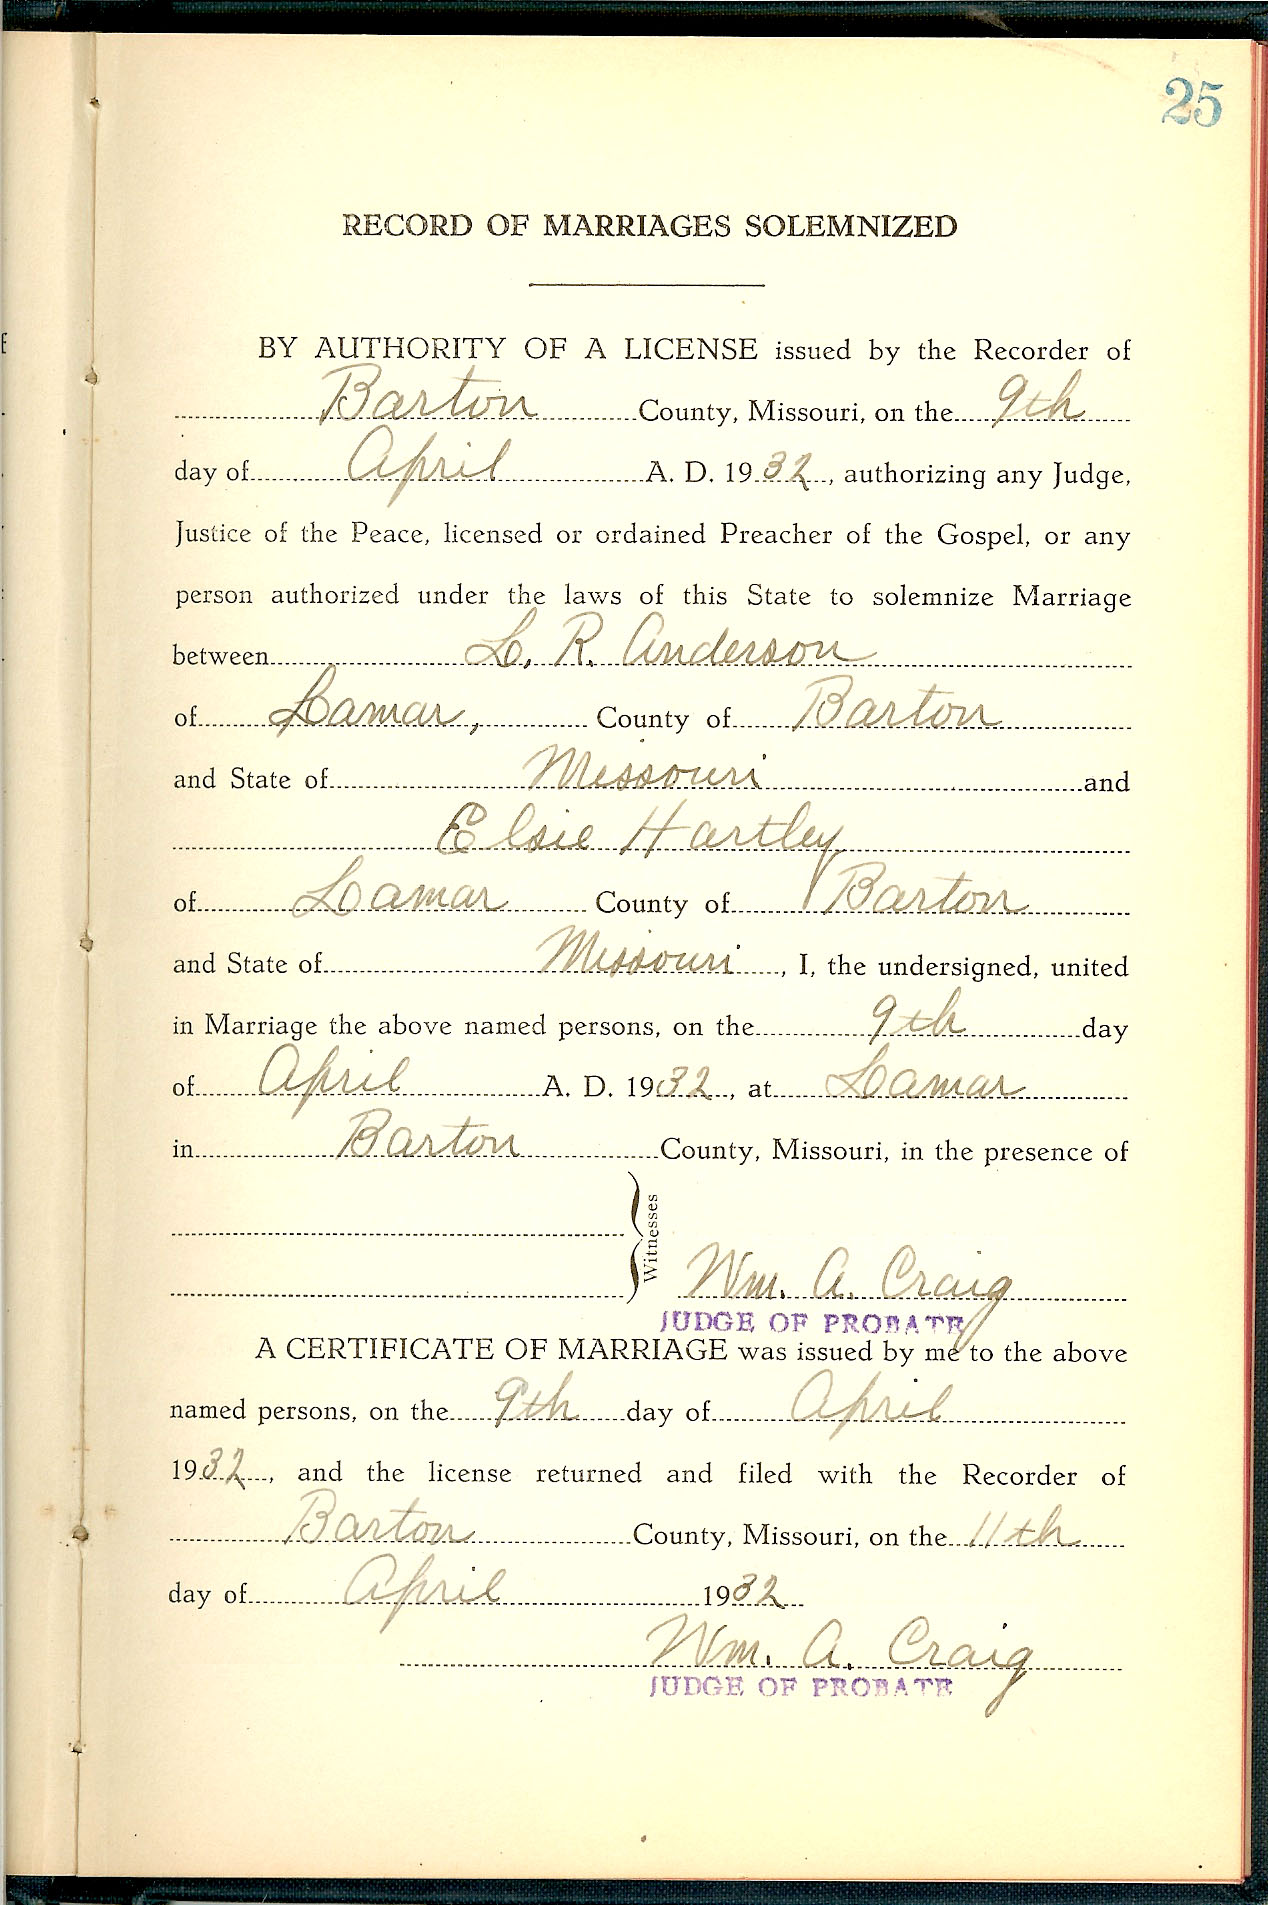 25
RECORD OF MARRIAGES SOLEMNIZED
BY AUTHORITY OF A LICENSE issued by the Recorder of
Barton County, Missouri, on the 9th
day of April A. D. 1932, authorizing any Judge,
Justice of the Peace, licensed or ordained Preacher of the Gospel, or any
person authorized under the laws of this State to solemnize Marriage
between L. R. Anderson
of Lamar, County of Barton
and State of Missouri and
Elsie Hartley
of Lamar County of Barton
and State of Missouri, I, the undersigned, united
in Marriage the above named persons, on the 9th day
of April A. D. 1932, at Lamar
in Barton County, Missouri, in the presence of
Witnesses
Wm. A. Craig
JUDGE OF PROBATE
A CERTIFICATE OF MARRIAGE was issued by me to the above
named persons, on the 9th day of April
1932, and the license returned and filed with the Recorder of
Barton County, Missouri, on the 11th
day of April 1932
Wm. A. Craig
JUDGE OF PROBATE